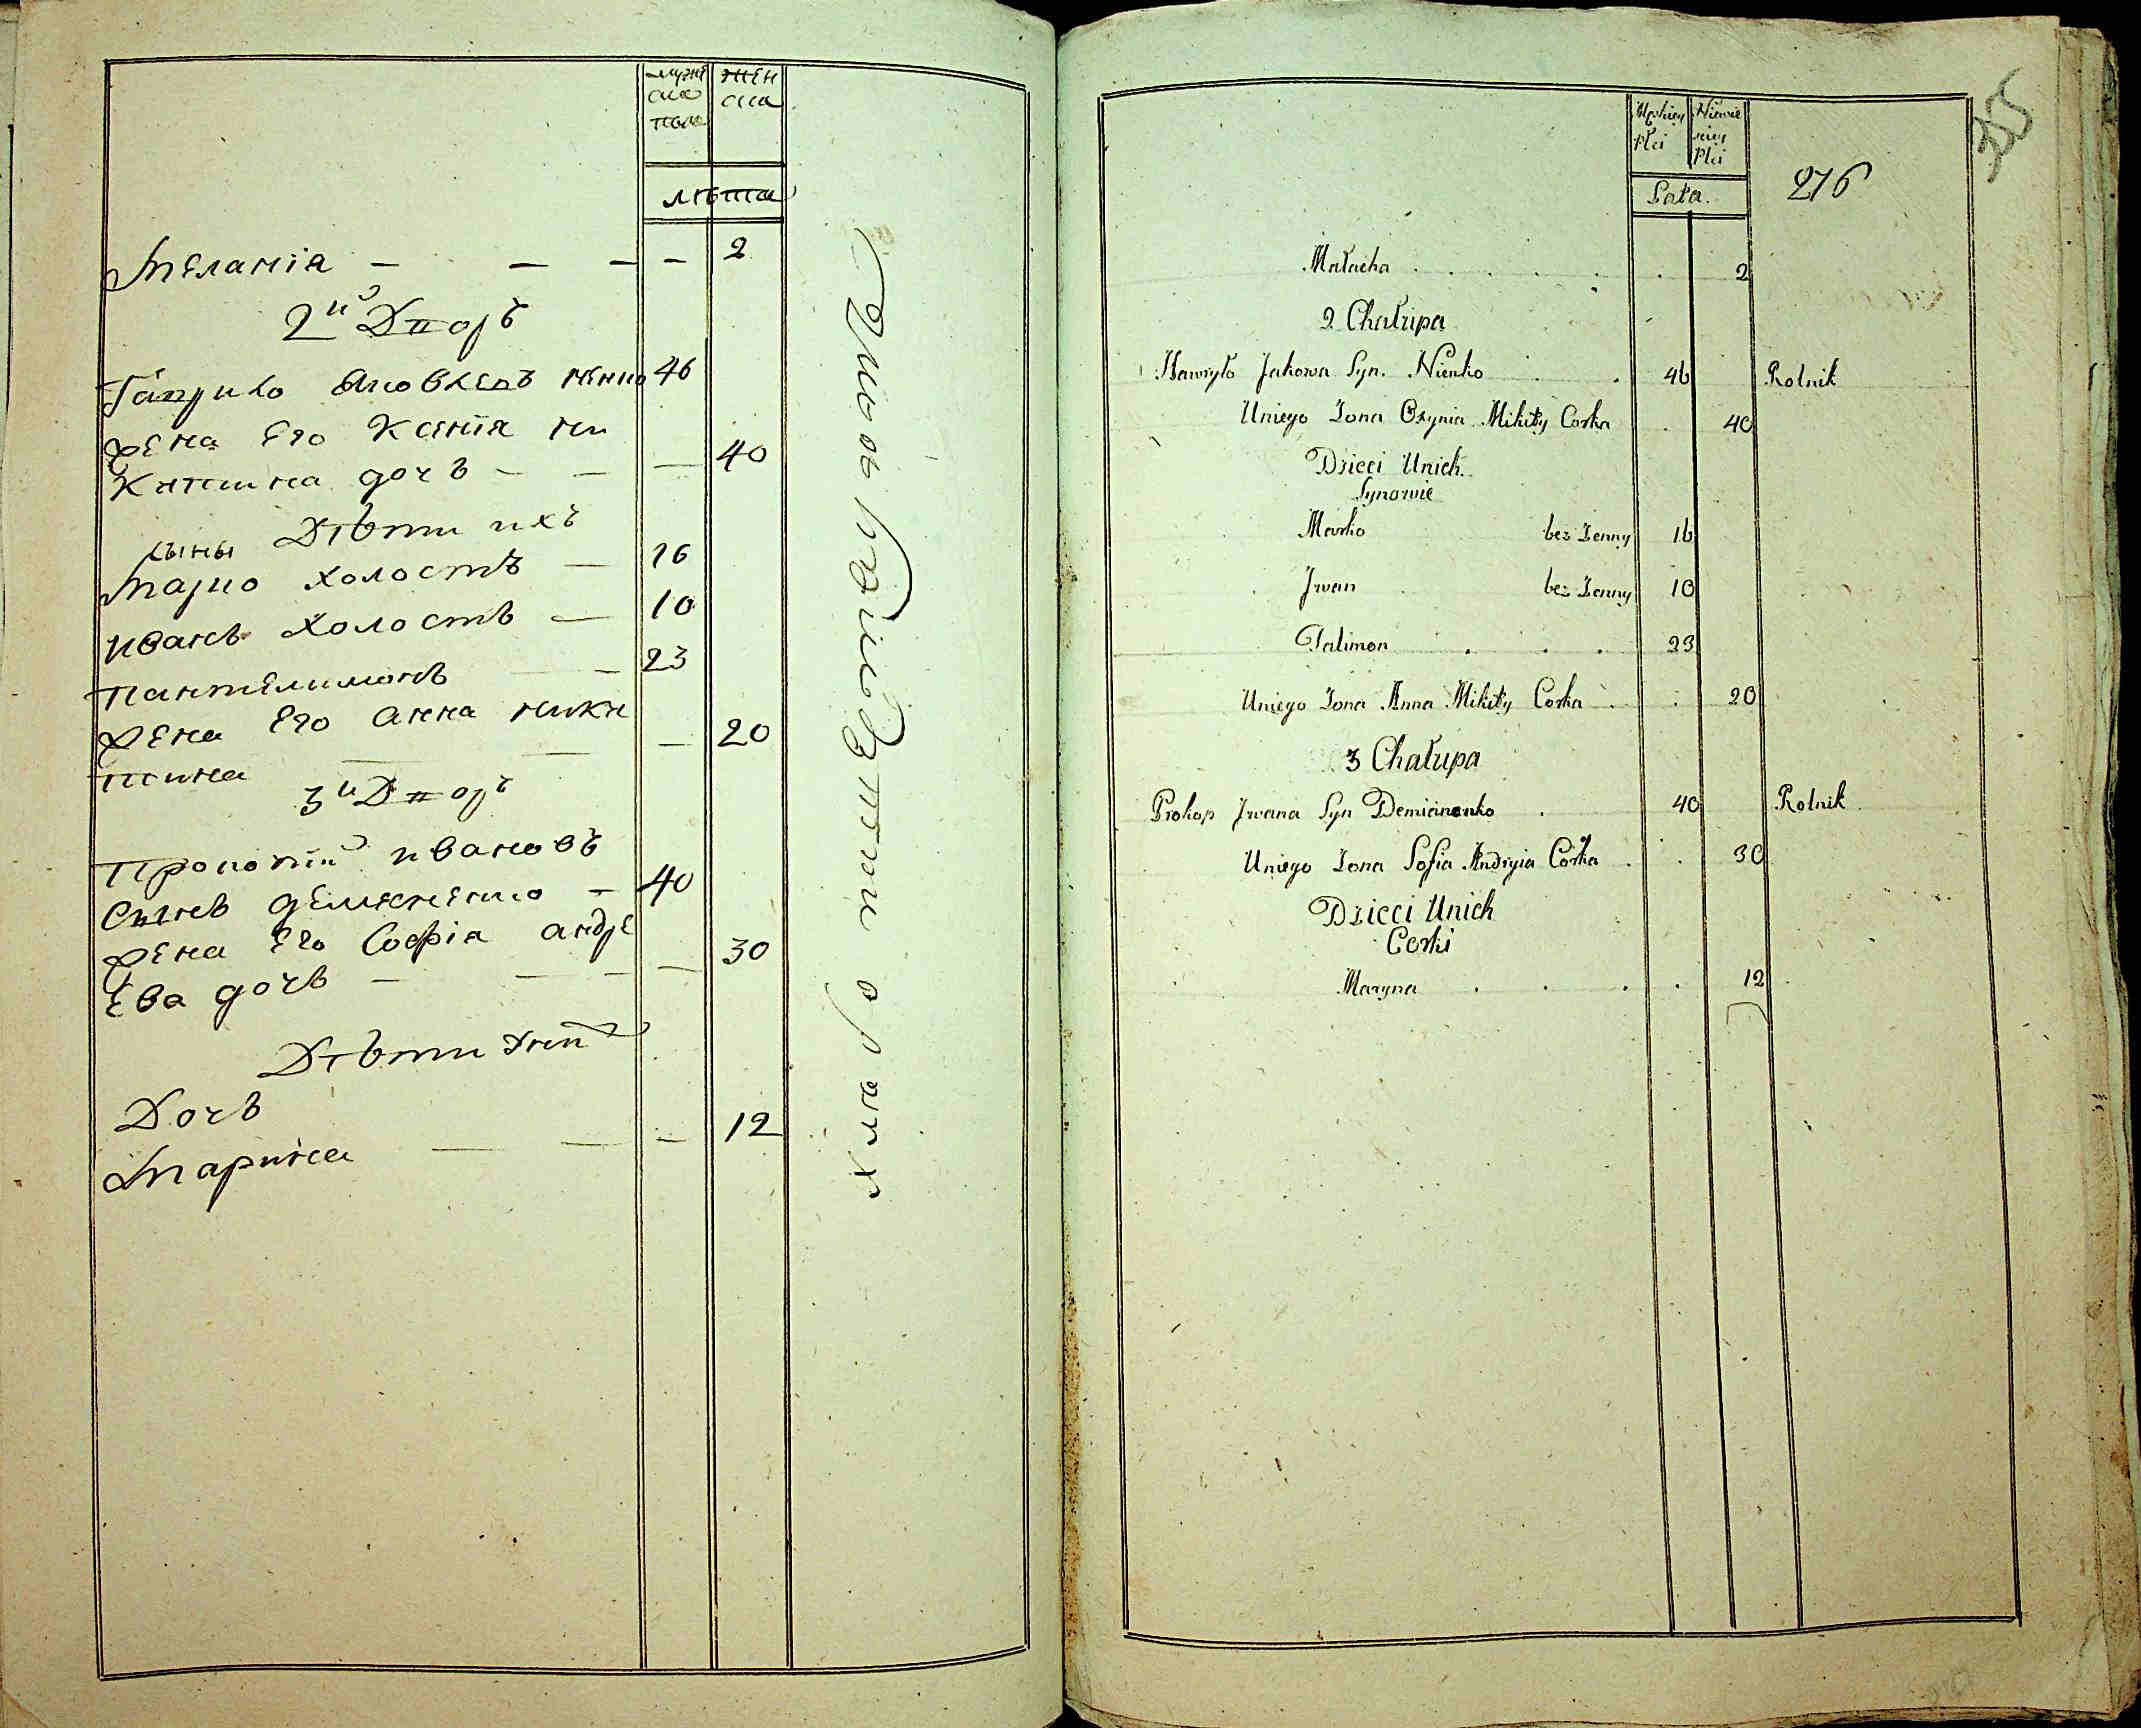 мужс
ска
пола
жен
ска
лѣта
Меланія — — — — 2
2й Дворъ
Гаврило Яковлевъ Ненко 46
жена Его Ксенія Ни
китина дочь — — — 40
Дѣти ихъ
сыны
Марко холостъ — 16
Иванъ Холостъ — 10
Пантелимонъ — 23
жена Его Анна Ники
тина — — — 20
3й Дворъ
Прокопій Ивановъ
Сынъ Демяненко — 40
жена Его Софія Андре
Ева дочь — — — — 30
Дѣти
Дочь
Марина — — — 12
хлѣбопа
Męskiey
Płci
Niewie
sciey
Płci
Lata.
276
Małacha . . . . . . 2
2 Chałupa
Hawryło Jakowa Syn. Nienko . . 46 Rolnik
Uniego Zona Oxynia Mikity Corka . 40
Dzieci Unich.
Synowie
Marko bez Zenny 16
Jwan bez Zenny 10
Palimon . . . 23
Uniego Zona Anna Mikity Corka . . 20
3 Chałupa
Prokop Jwana Syn Demianenko . 40 Rolnik
Uniego Zona Sofia Andryia Corka . . 30
Dzieci Unich
Corki
Maryna . . . . 12